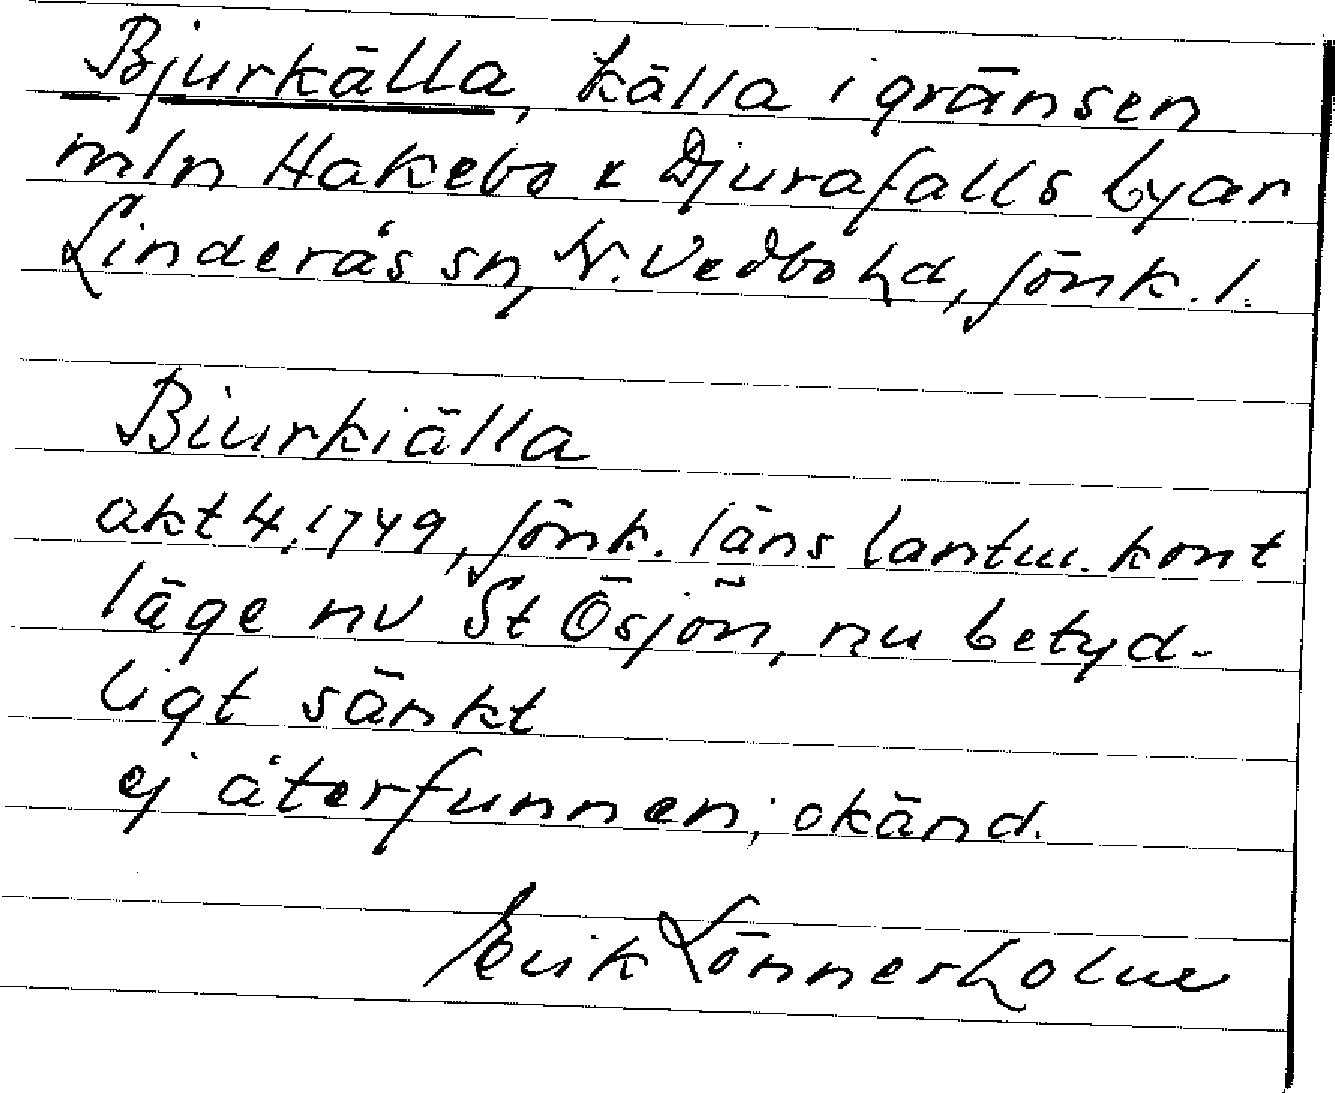 Bjurkälla, källa i gränsen
mln Hakebo x Djurafalls byar
Linderås sn, N. Vedbo hd, Jönk. l.
Biurkiälla
akt 4, 1749, Jönk. läns lantm. kont
läge nv St Ösjön, nu betyd-
ligt sänkt
ej återfunnen; okänd.
Erik Lönnerholm